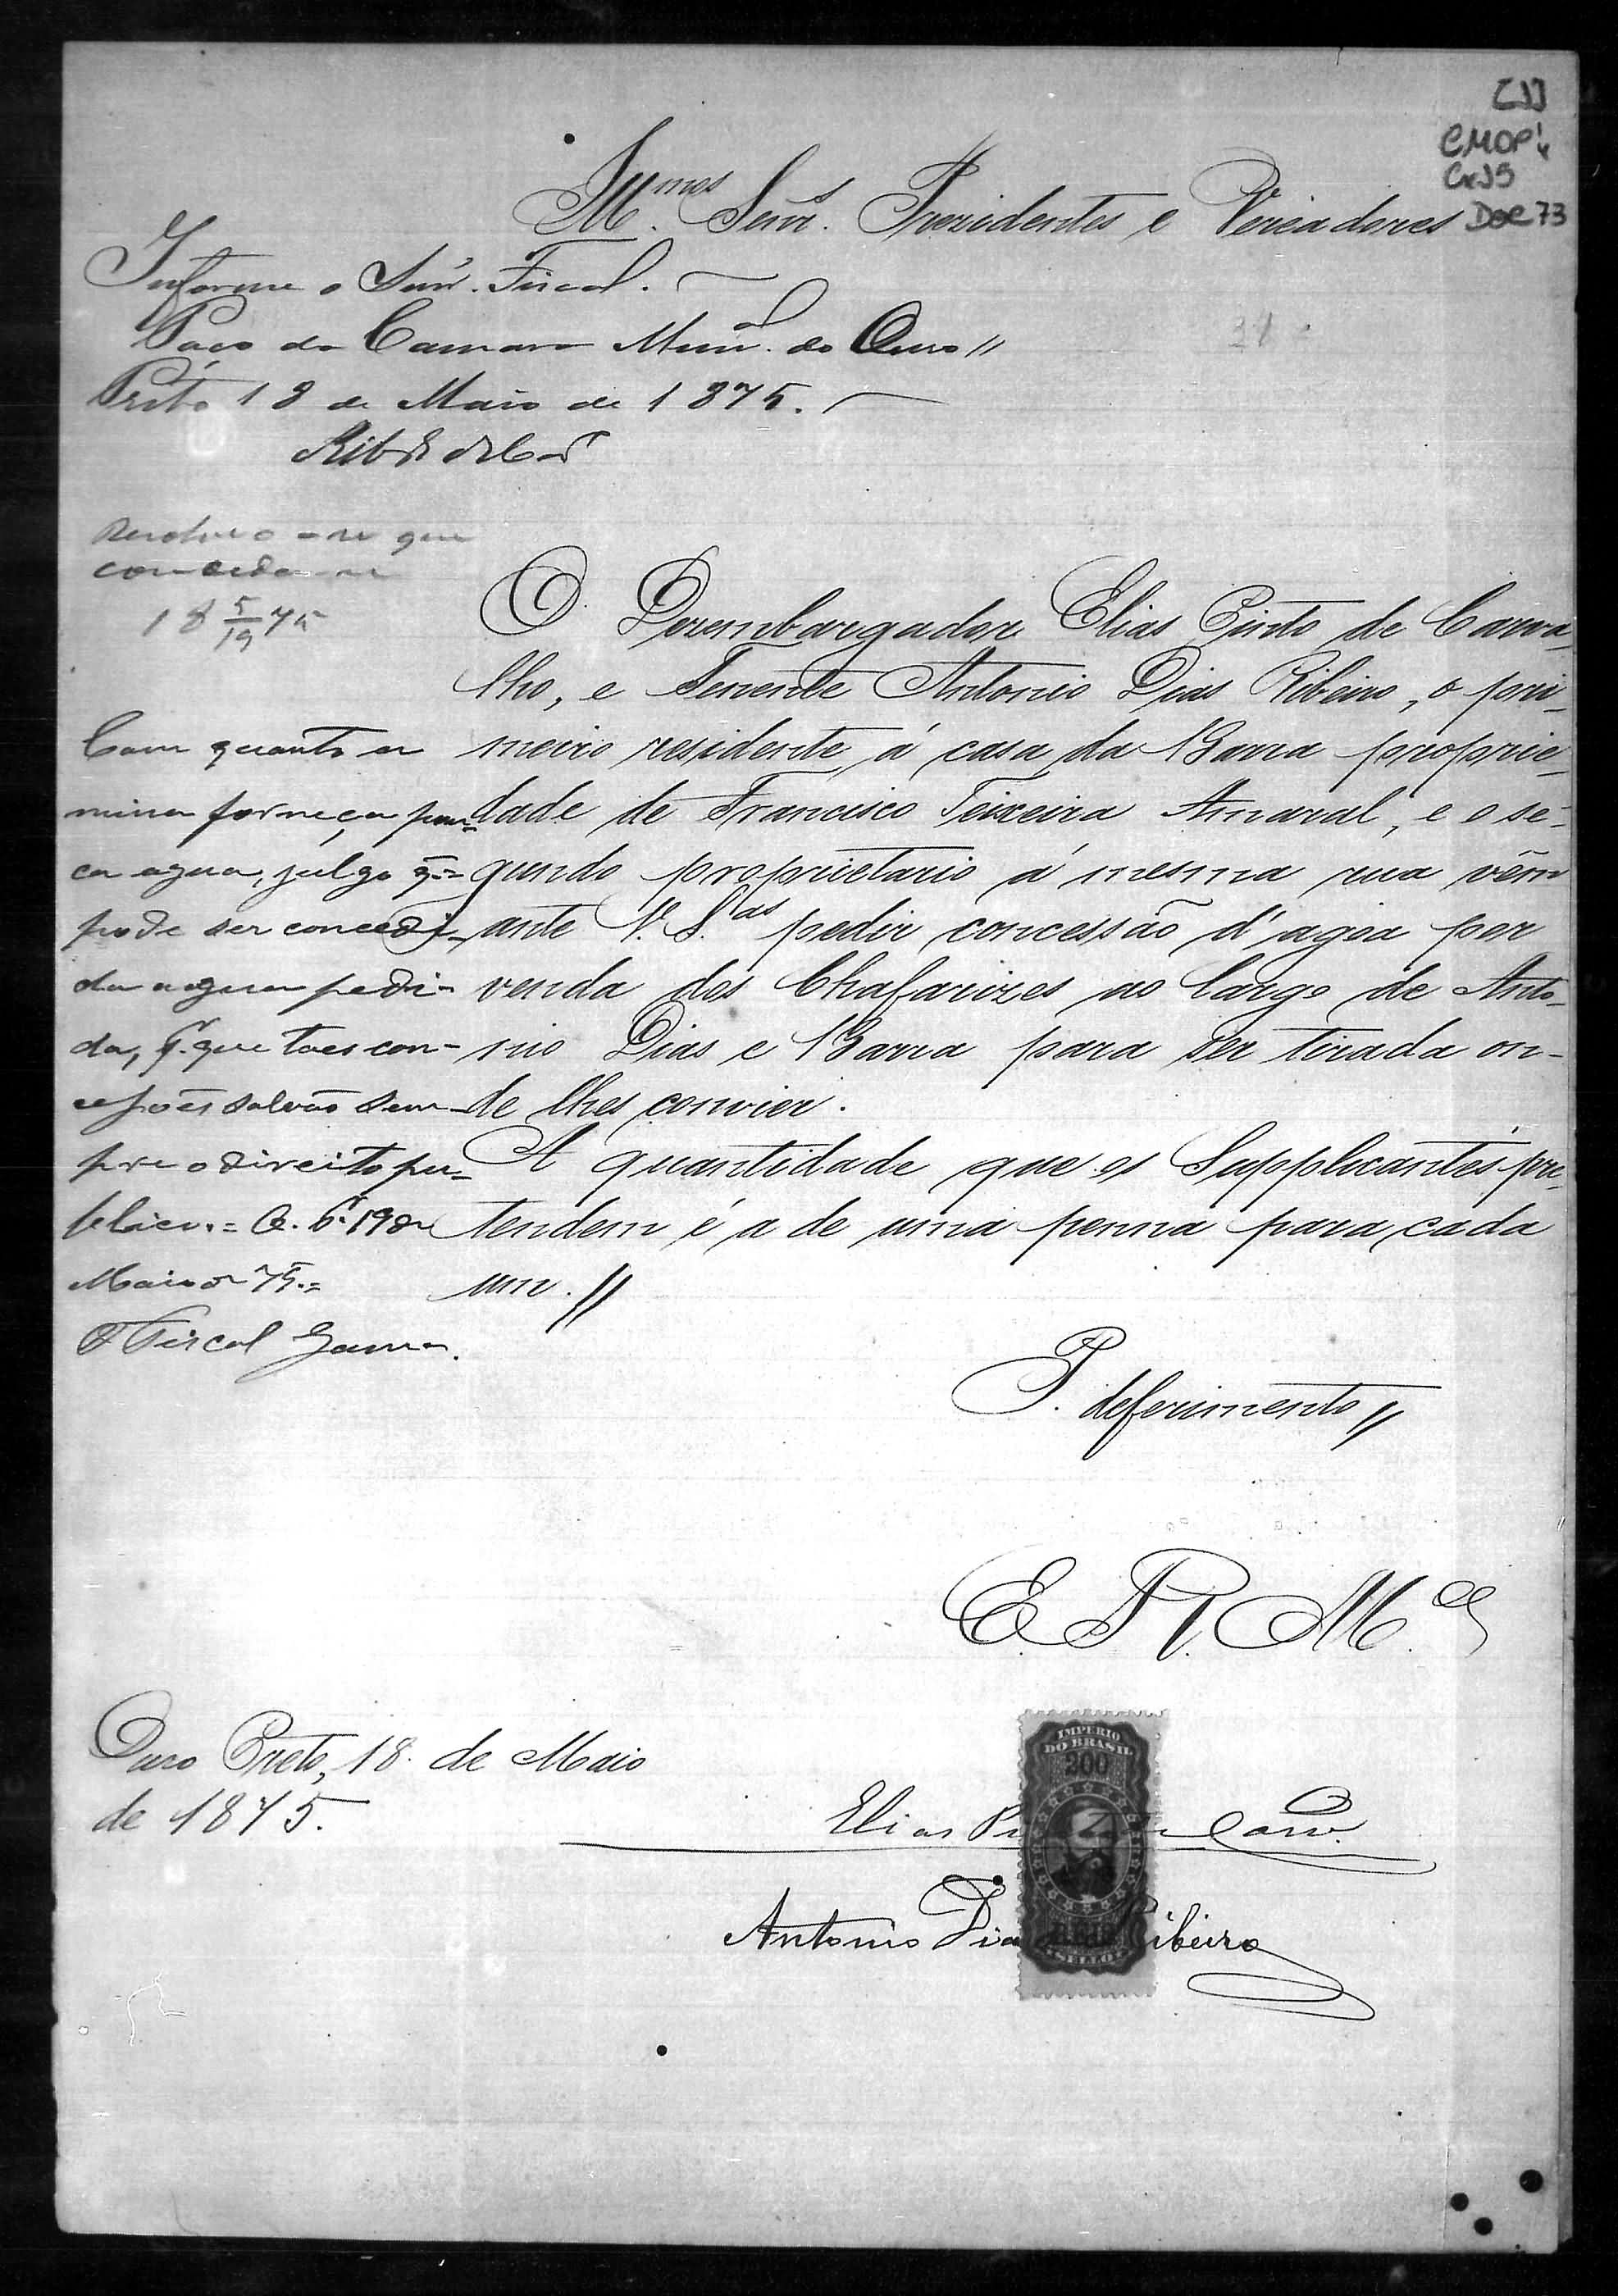 [1]
CMOP
Cx 15
Doc 73
Ill.mos Senr.s Prezidentes e Vereadores
Informe o Snr. Fiscal.
Paço da Camara Mun.al do Ouro
Preto 18 de Maio de 1875.
Resolveo-se que
conceda-se
18 5/19 75
O Dezembargador Elias Pinto de Carva-
lho, e Tenente Antonio Dias Ribeiro, o pri-
meiro residente á casa da Barra proprie-
dade de Francisco Teixeira Amaral, e o se-
gundo proprietario á mesma rua vêm
ante V. S.as pedir concessão d'agoa por
venda dos Chafarizes ao Largo de Anto-
nio Dias e Barra para ser tirada on-
de lhes convier.
A quantidade que os Supplicantes pre-
tendem é a de uma penna para cada
um. //
Com quanto a
mina forneça pou-
ca agua, julgo q.=
pode ser concedi-
da a agua pedi-
da, p.r que taes con-
cessões salvão sem-
pre o direito pu-
blico.= O. P. 19 de
Maio de 75.=
O Fiscal Gama.
P. deferimento //
E. R. M.ce
Ouro Preto, 18 de Maio
de 1875.
IMPERIO
DO BRASIL
200
Elias Pinto de Carv.
Antonio Dias Ribeiro
SELLO